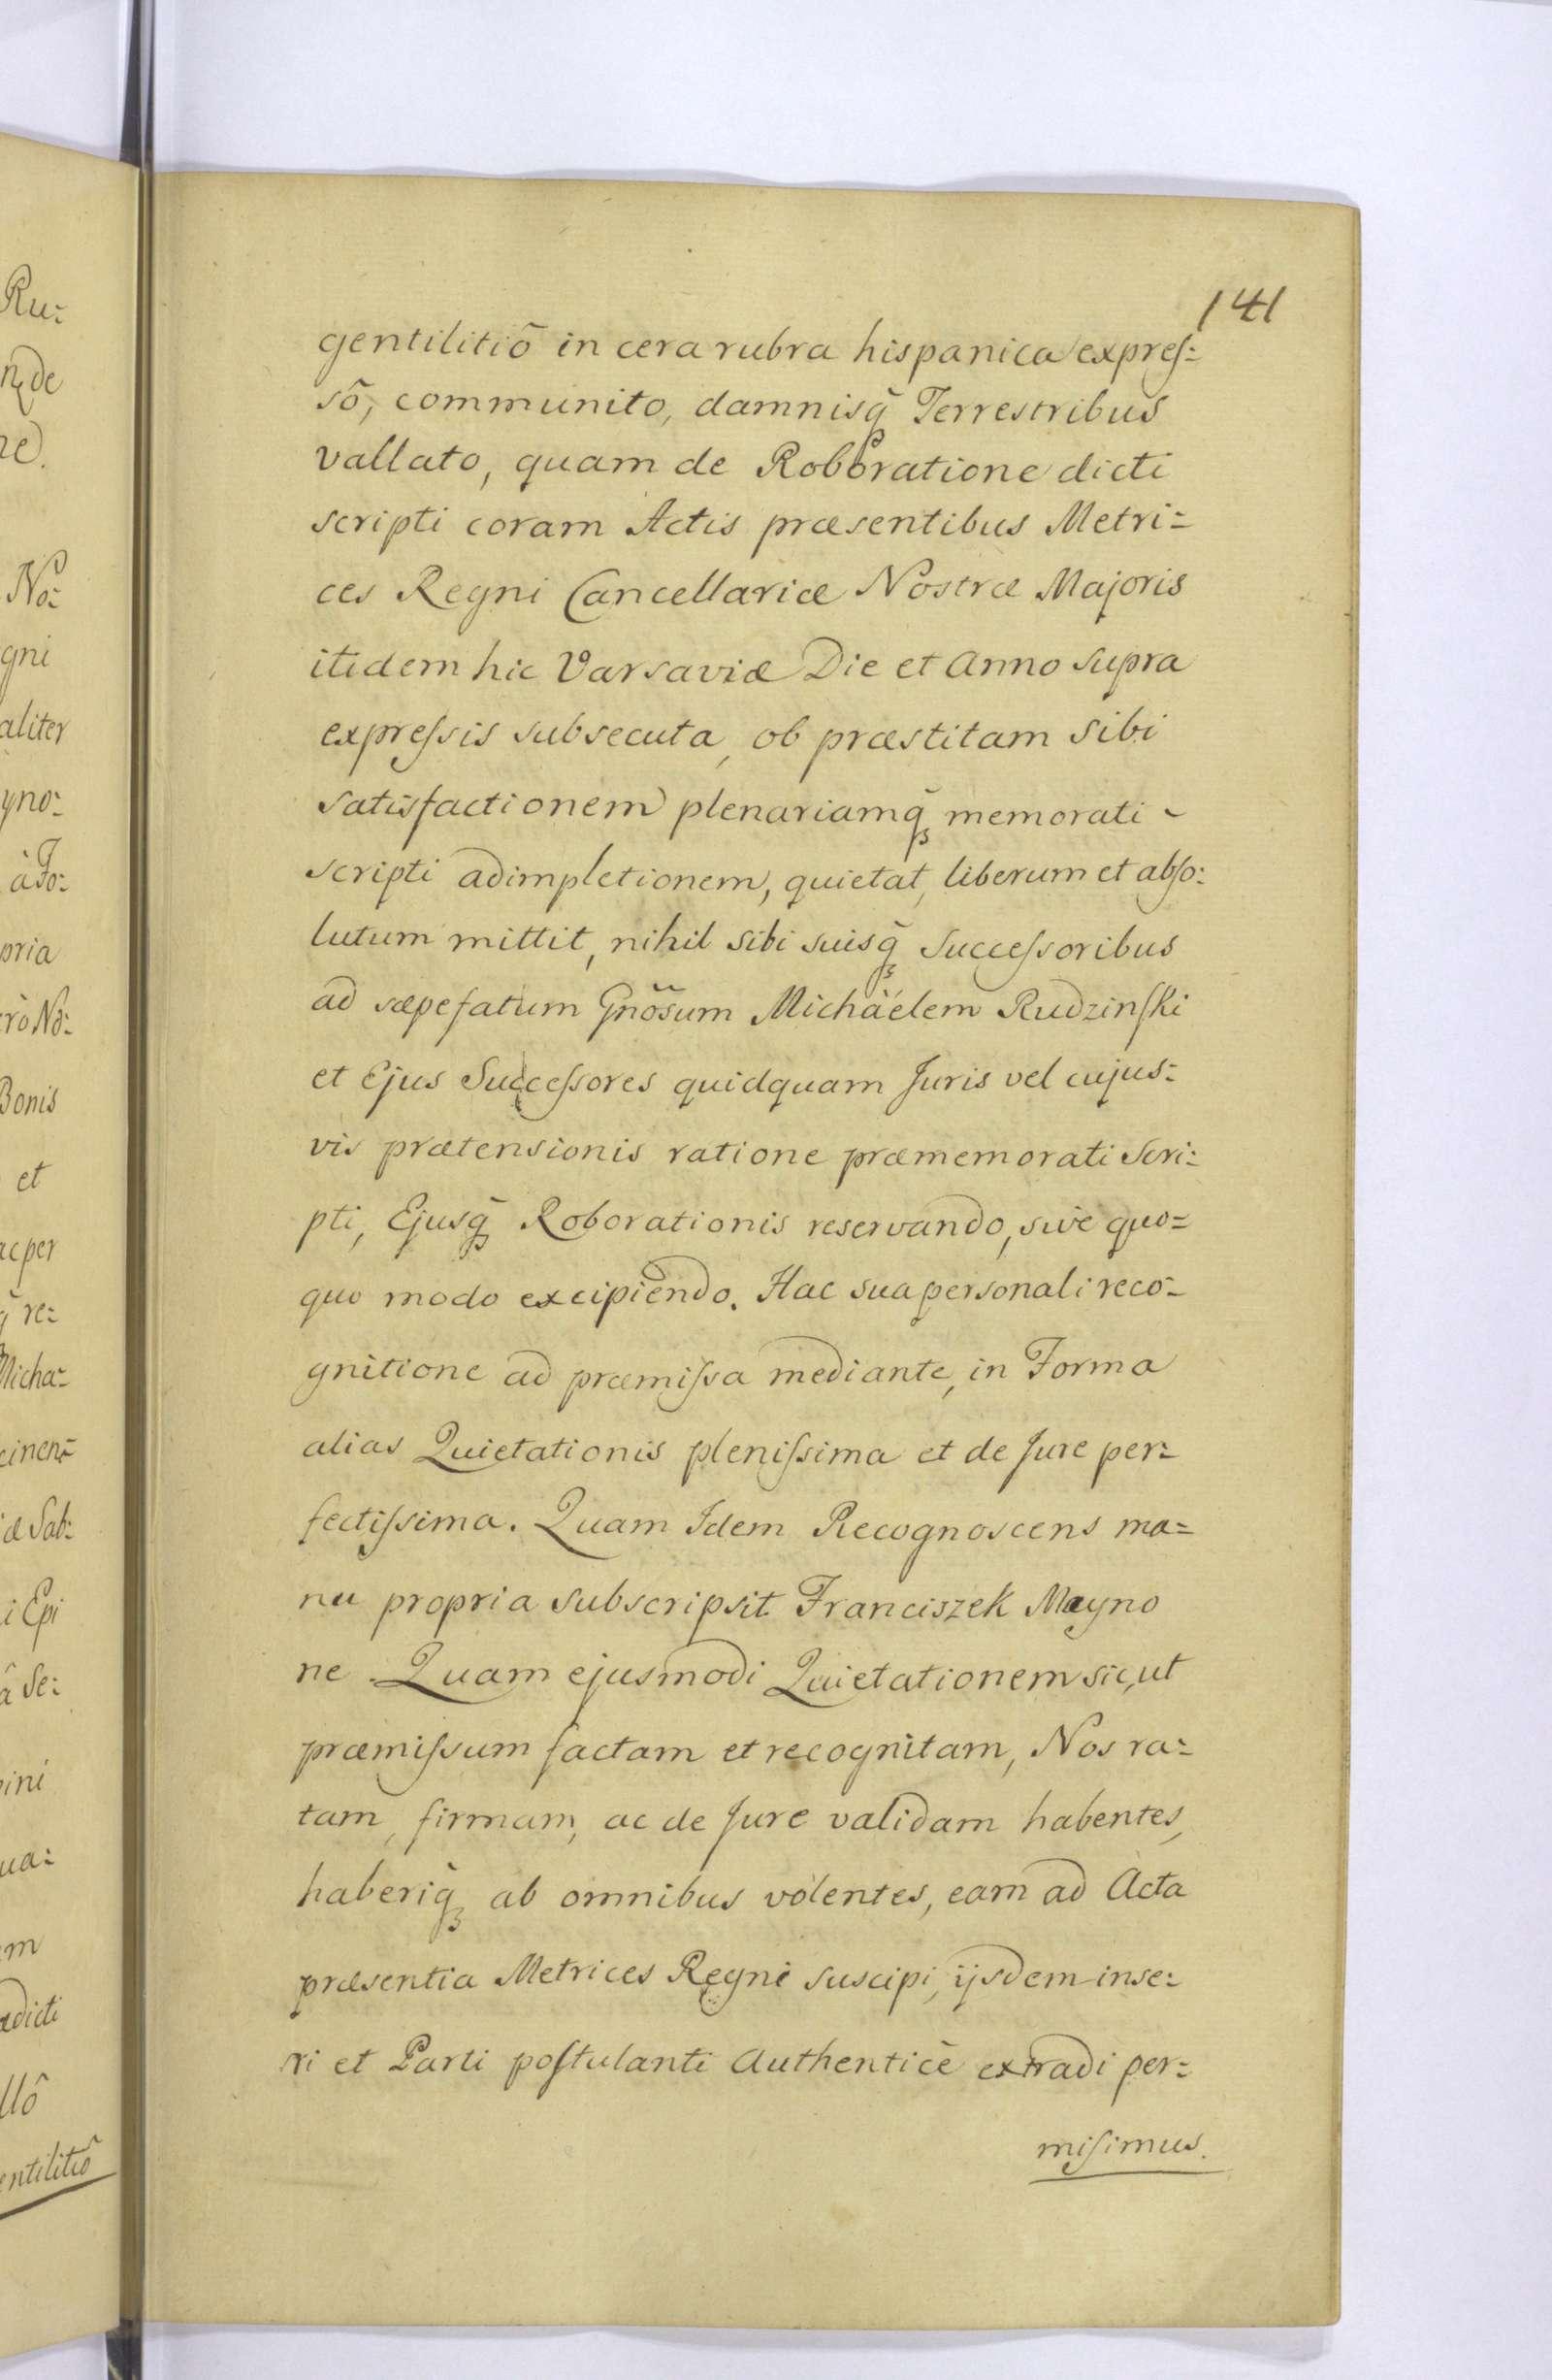 141
gentilitiõ in cera rubra hispanica expreſ:
sõ, communito, damnisq̃ Terrestribus
vallato, quam de Roboratione dicti
scripti coram Actis præsentibus Metri=
ces Regni Cancellariæ Nostræ Majoris
itidem hic Varsaviæ Die et Anno supra
expreſsis subsecuta, ob præstitam sibi
satisfactionem plenariamq̃ memorati ~
scripti adimpletionem, quietat, liberum et abſo:
lutum mittit, nihil sibi suisq̃ Succeſsoribus
ad sæpefatum Gnõsum Michäélem Rudzinſki
et Ejus Succeſsores quidquam Juris vel cujus:
vis prætensionis ratione præmemorati Scri:
pti, Ejusq̃ Roborationis reservando, sive quo=
quo modo excipiendo. Hac sua personali reco=
gnitione ad præmiſsa mediante, in Forma
alias Quietationis pleniſsima et de Jure per=
fectiſsima. Quam Idem Recognoscens ma=
nu propria subscripsit Franciszek Mayno
ne. Quam ejusmodi Quietationem sic, ut
præmiſsum factam et recognitam, Nos ra=
tam, firmam, ac de Jure validam habentes,
haberiq̃ ab omnibus volentes, eam ad Acta
præsentia Metrices Regni suscipi, ijsdem inse:
ri et Parti poſtulanti Authenticè extradi per=
miſimus.
Ru:
nde
ne.
No:
gni
aliter
yno:
à Jo:
pria
rò No:
Bonis
et
ac per
q̃ re:
Micha=
cinen=
æ Sab:
i Epi
â Se:
pini
ua:
em
ædicti
llô
entilitiô